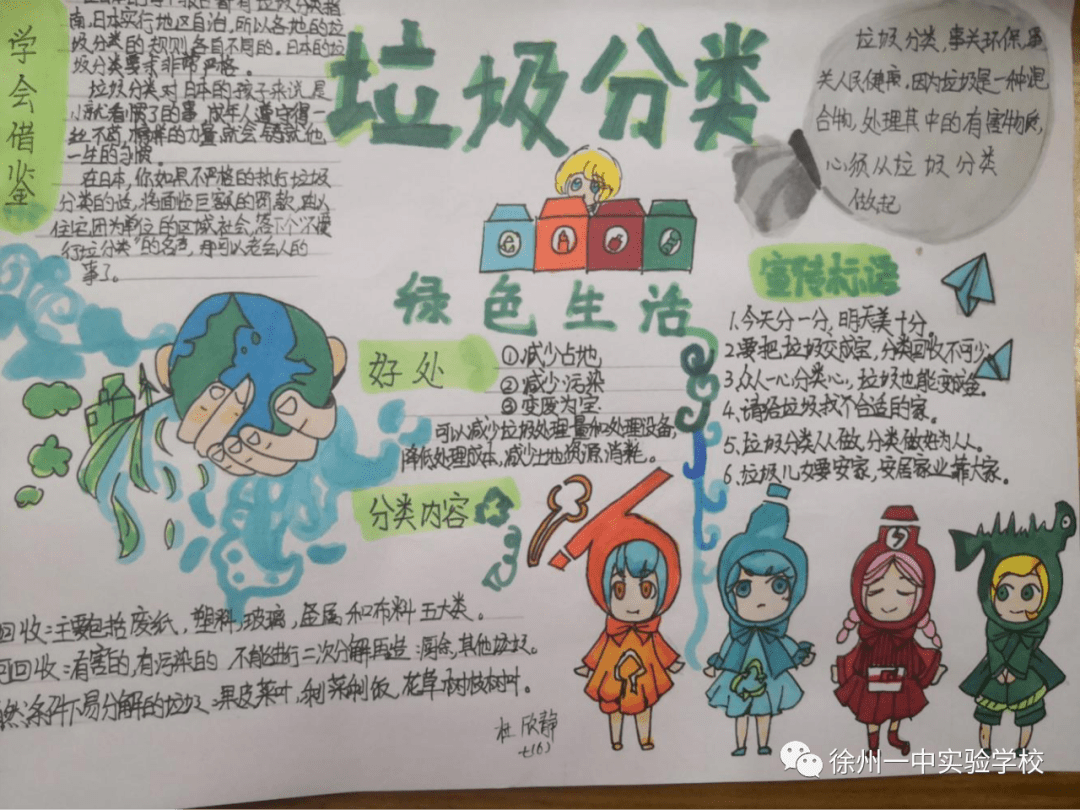 垃圾分类
绿色生活
学会借鉴
南,日本实行地区自治,所以各地的垃
圾分类的规则各自不同的。日本的垃
圾分类要求非常严格。
垃圾分类对日本的孩子来说是
从小就看惯了的事,成年人遵守得一
丝不苟,榜样的力量就会铸就他
一生的习惯。
在日本,你如果不严格的执行垃圾
分类的话,将面临巨额的罚款
行垃圾分类"的名声,那可以老丢人的
事了。
垃圾分类,事关环保,事
关人民健康,因为垃圾是一种混
合物,处理其中的有害物质,
必须从垃圾分类
做起
宣传标语
1.今天分一分,明天美十分。
2.要把垃圾变成宝,分类回收不可少
3.众人一心分类心,垃圾也能变成金。
4.请给垃圾找个合适的家。
5.垃圾分类人人做,分类做好为人人。
6.垃圾儿女要安家,安居家业靠大家。
好处
①减少占地
②减少污染
③变废为宝
可以减少垃圾处理量和处理设备,
降低处理成本,减少土地资源消耗。
分类内容
回收:主要包括废纸,塑料,玻璃,金属和布料五大类。
可回收:有害的,有污染的 不能进行二次分解再造:厨余,其他垃圾。
然条件下易分解的垃圾:果皮菜叶,剩菜剩饭,花草树枝树叶。
杜欣静
七(6)
徐州一中实验学校